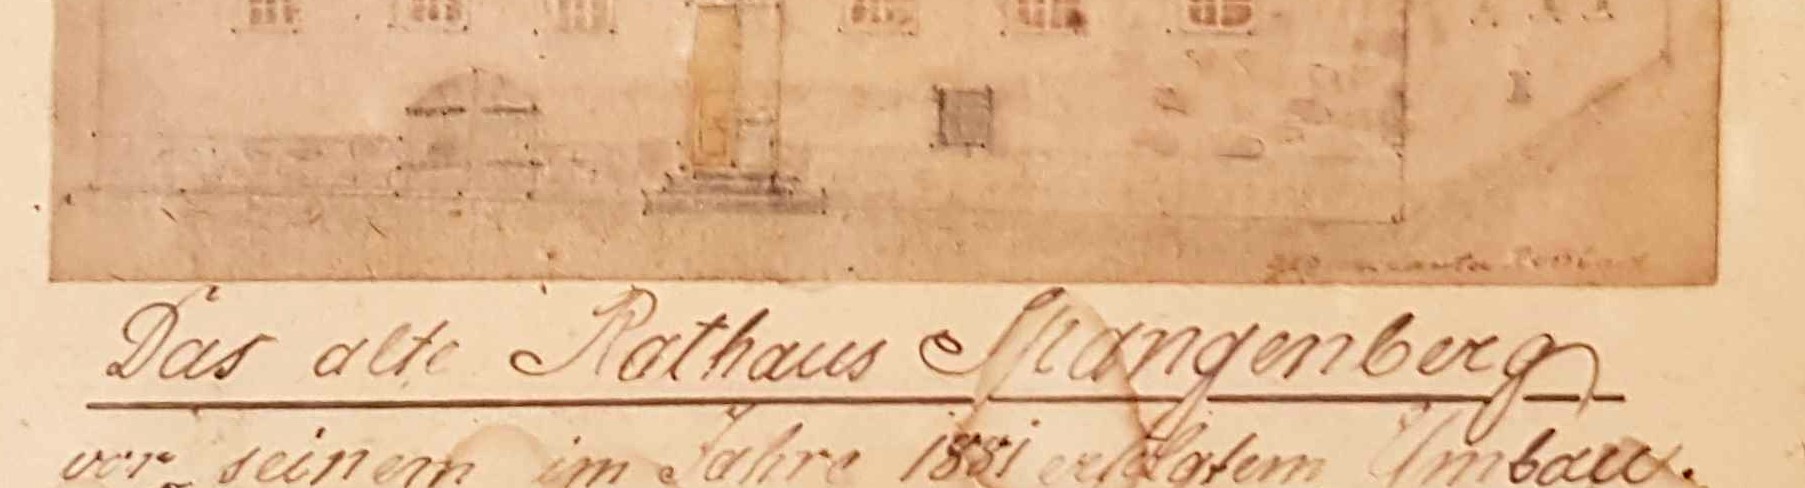 Das alte Rathaus Spangenberg
vor seinem im Jahre 1881 erfolgtem Umbau.